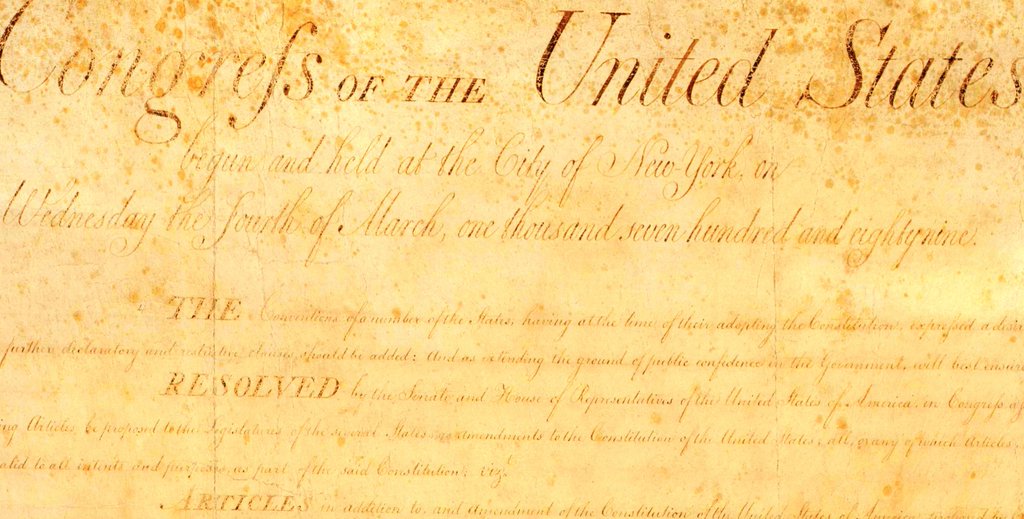 Congreſs OF THE United States
begun and held at the City of New-York, on
Wednesday the Fourth of March, one thousand seven hundred and eighty nine.
THE Conventions of a number of the States, having at the time of their adopting the Constitution, expreſsed a desi
further declaratory and restrictive clauses should be added: And as extending the ground of public confidence in the Government, will best ensure
RESOLVED by the Senate and House of Representatives of the United States of America, in Congreſs a
ing Articles be proposed to the Legislatures of the several States, as amendments to the Constitution of the United States, all, or any of which Articles,
alid to all intents and purposes, as part of the said Constitution; vizt
ARTICLES in addition to, and Amendment of the Constitution of the United States of America